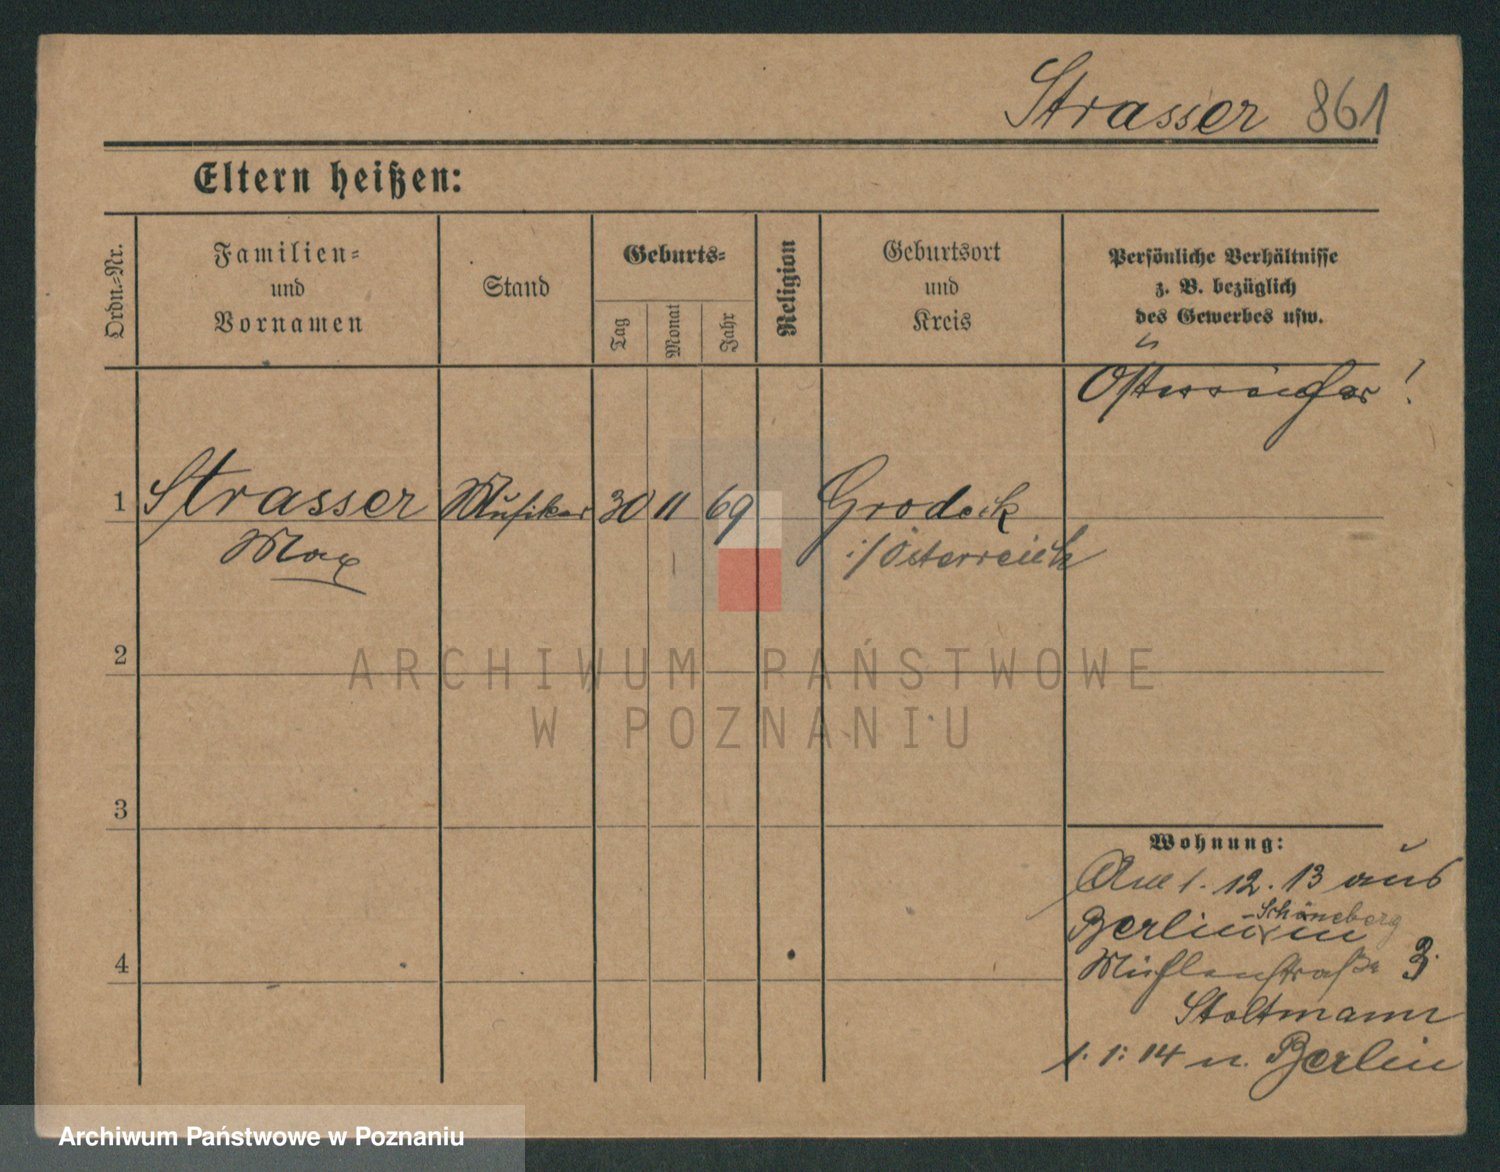 Strasser 861
Eltern heißen:
Ordn.-Nr.
Familien-
und
Vornamen
Stand
Geburts-
Tag
Monat
Jahr
Religion
Geburtsort
und
Kreis
Persönliche Verhältnisse
z. B. bezüglich
des Gewerbes usw.
Österreicher!
1 Strasser Musiker 30 11 69 Grodeck
Max i/Österreich
2
3
4
Wohnung:
Am 1. 12. 13 aus
Berlin-Schöneberg in
Mühlenstraße 3.
Stoltmann
1. 1. 14 n. Berlin
ARCHIWUM PAŃSTWOWE
W POZNANIU
Archiwum Państwowe w Poznaniu